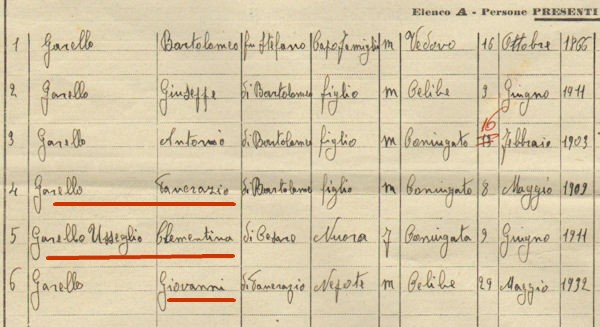 Elenco A - Persone PRESENTI
1 Garello Bartolomeo fu Stefano Capo famiglia m Vedovo 16 Ottobre 1866
2 Garello Giuseppe di Bartolomeo figlio m Celibe 9 Giugno 1911
16
3 Garello Antonio di Bartolomeo figlio m Coniugato Febbraio 1903
4 Garello Pancrazio di Bartolomeo figlio m Coniugato 8 Maggio 1909
5 Garello Usseglio Clementina di Cesare Nuora f Coniugata 9 Giugno 1911
6 Garello Giovanni di Pancrazio Nepote m Celibe 29 Maggio 1932